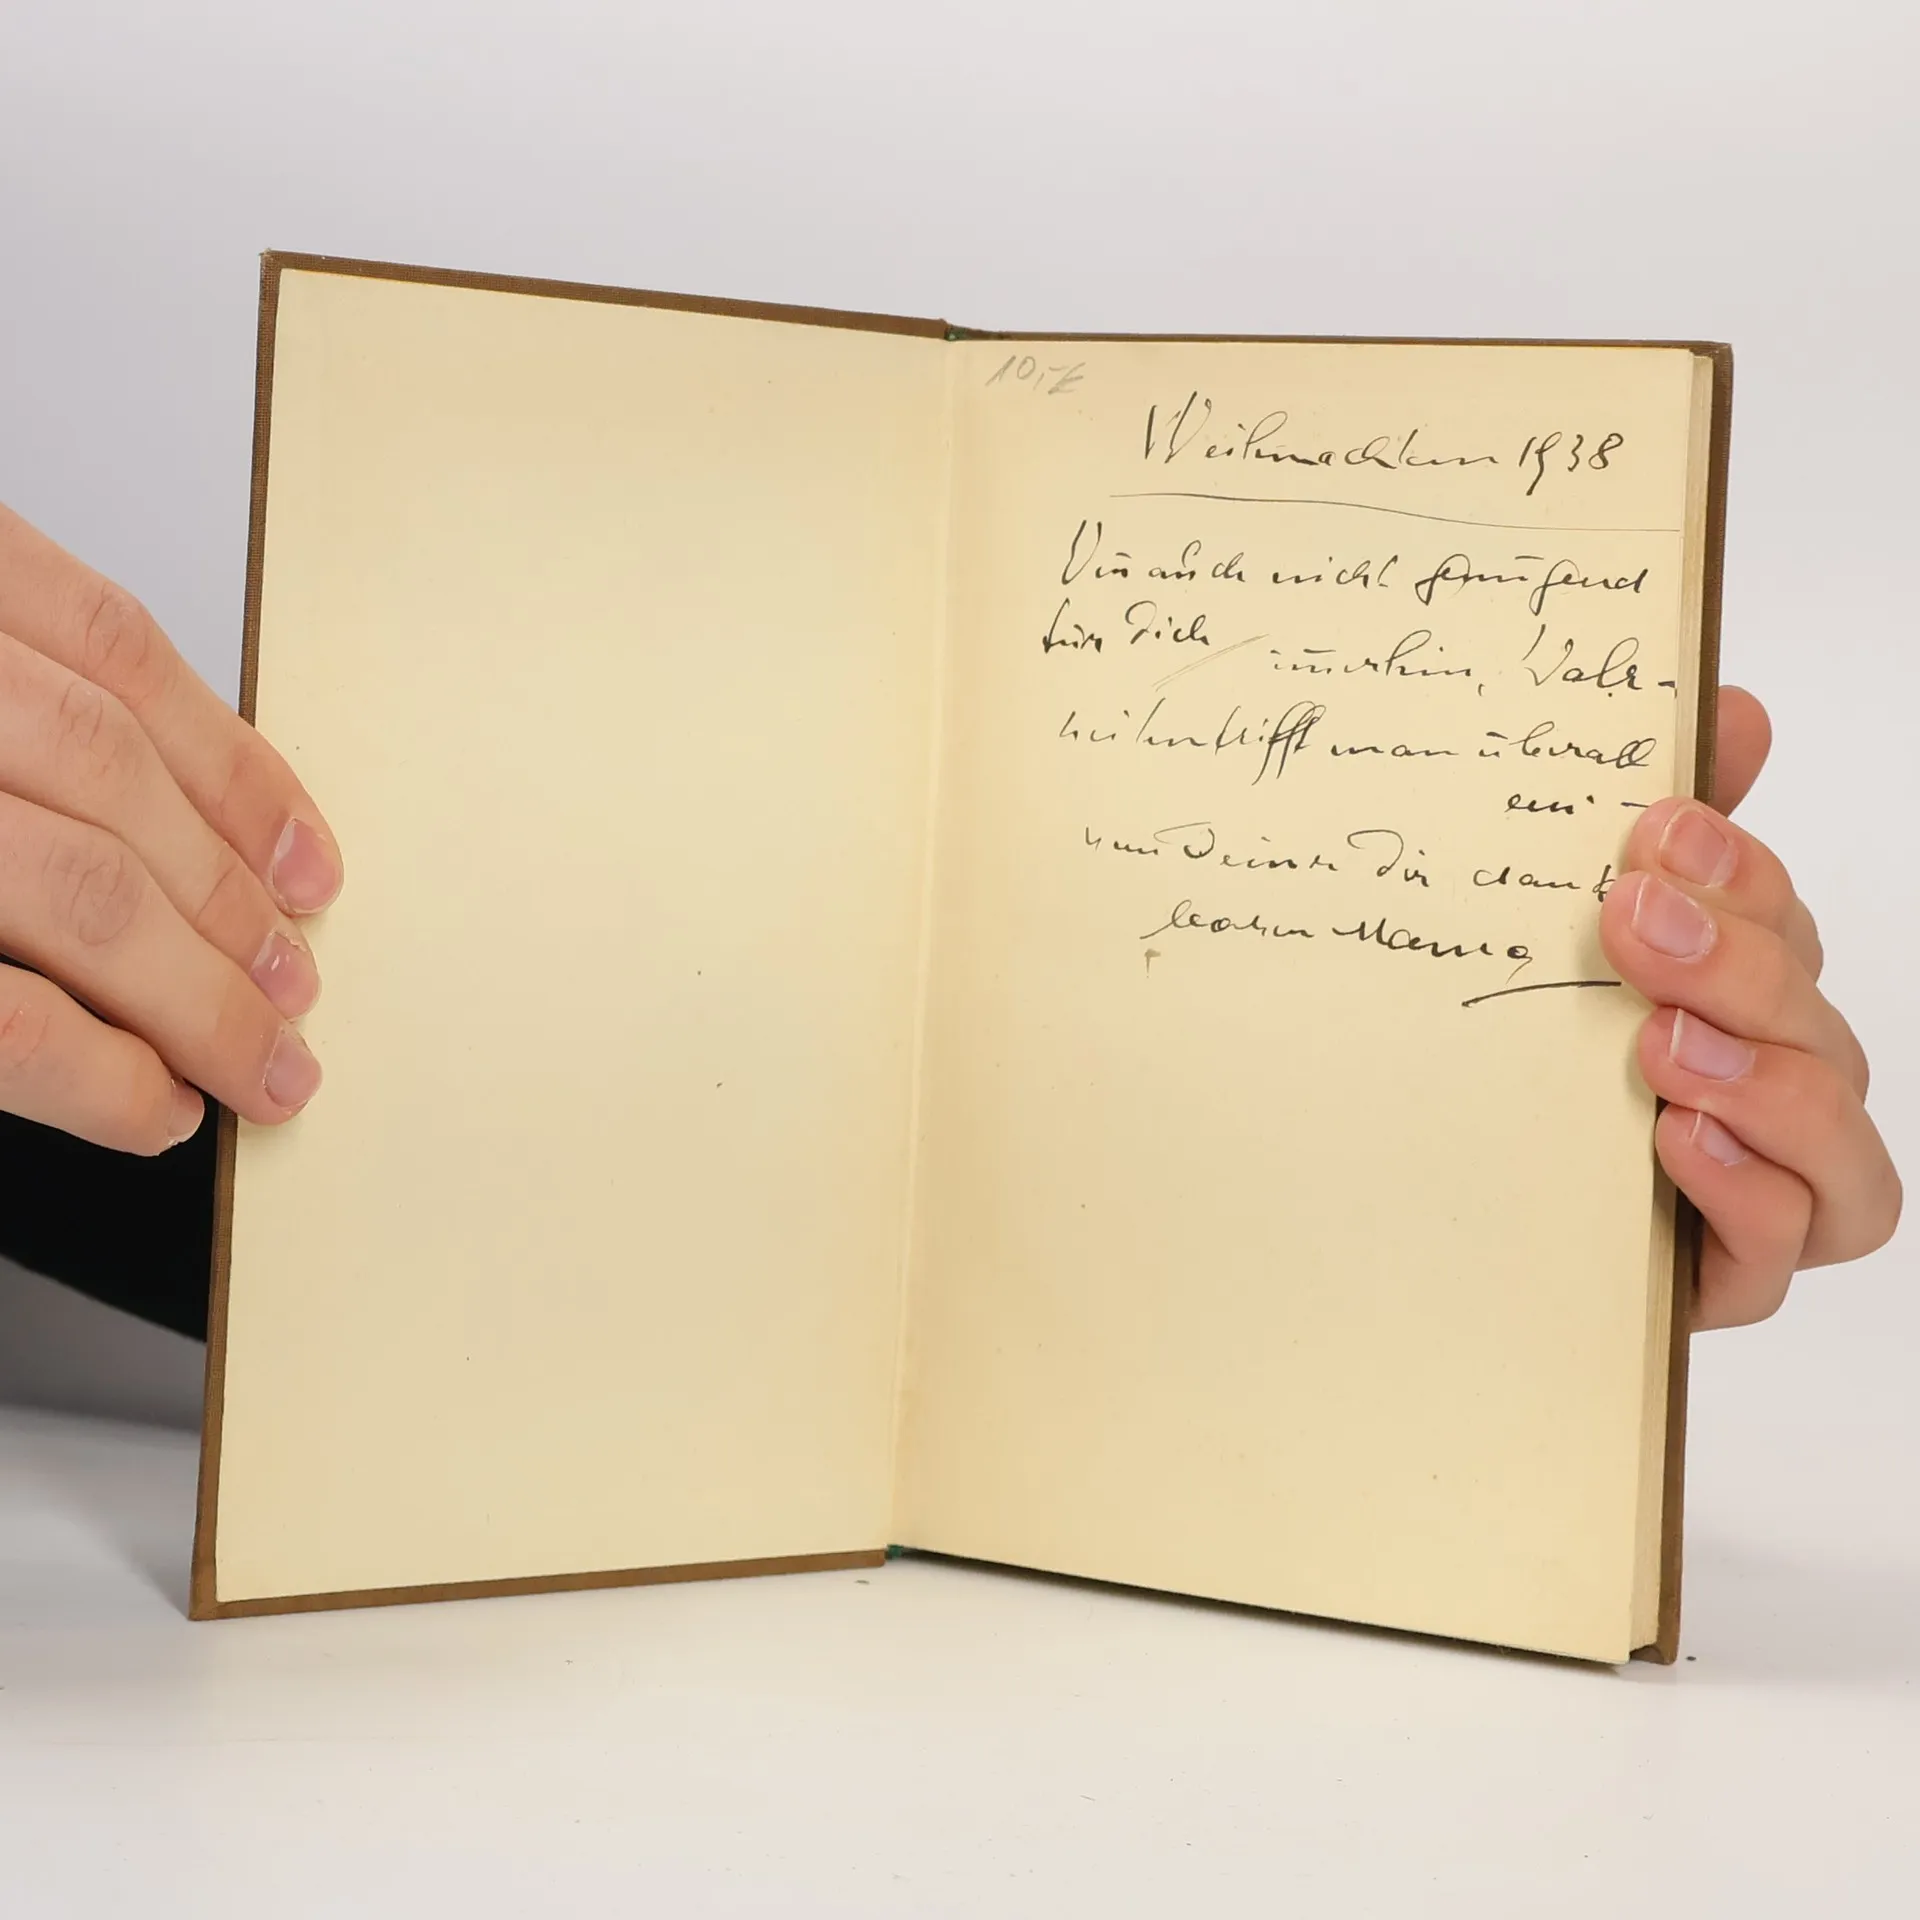 10,- €
Weihnachten 1938
auch nicht genügend
für Dich immerhin, Wahr-
heiten trifft man überall
ein -
von Deiner Dir dank
baren Mama